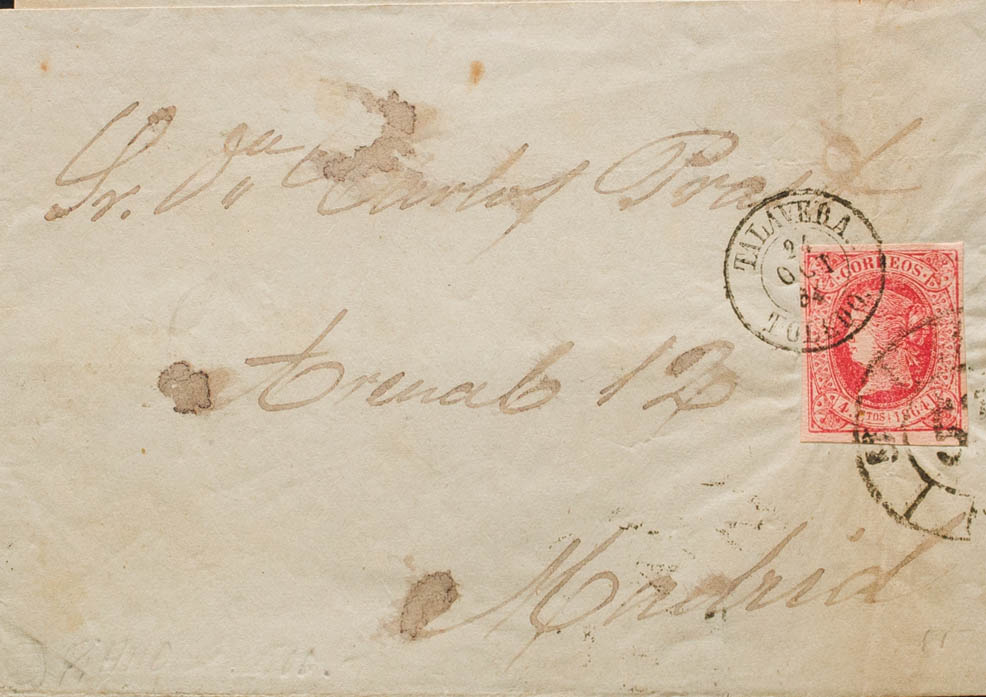 Sr. Dn Carlos Prast
TALAVERA.
24
OCT
64
TOLEDO.
CORREOS.
4. CTOS. 1864
Arenal 13
Madrid